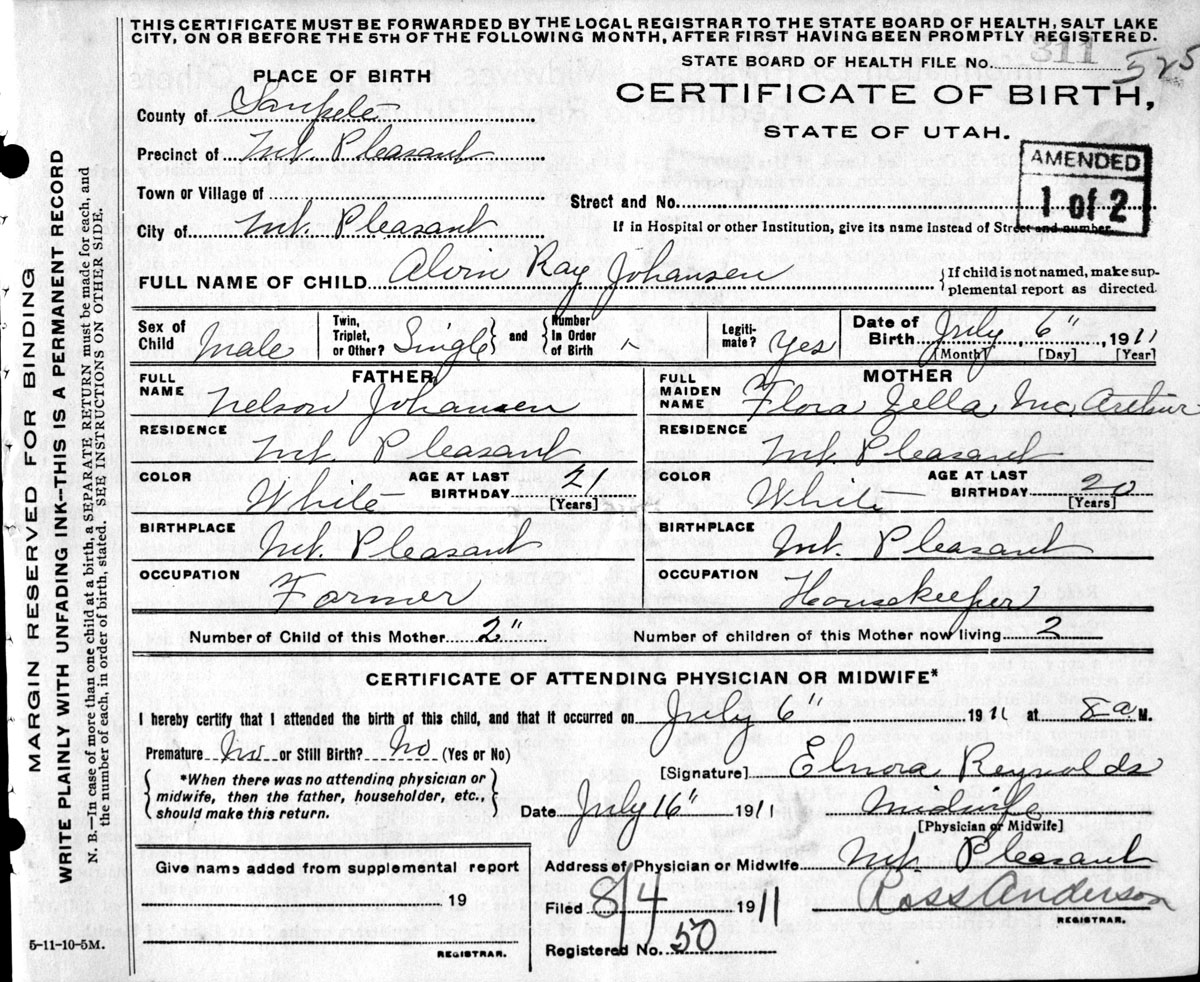 THIS CERTIFICATE MUST BE FORWARDED BY THE LOCAL REGISTRAR TO THE STATE BOARD OF HEALTH, SALT LAKE
CITY, ON OR BEFORE THE 5TH OF THE FOLLOWING MONTH, AFTER FIRST HAVING BEEN PROMPTLY REGISTERED.
STATE BOARD OF HEALTH FILE No. 311 525
PLACE OF BIRTH
CERTIFICATE OF BIRTH,
STATE OF UTAH.
County of Sanpete
Precinct of Mt. Pleasant
AMENDED
1 of 2
Town or Village of
Street and No.
City of Mt. Pleasant
If in Hospital or other Institution, give its name instead of Street and number.
FULL NAME OF CHILD Alvin Ray Johansen {If child is not named, make sup-
plemental report as directed.
Sex of Child Male
Twin, Triplet, or Other? Single } and { Number in Order of Birth
Legiti-mate? Yes
Date of Birth July 6", 1911
[Month] [Day] [Year]
FATHER
MOTHER
FULL NAME Nelson Johansen
FULL MAIDEN NAME Flora Zella Mc Arthur
RESIDENCE Mt. Pleasant
RESIDENCE Mt. Pleasant
COLOR White AGE AT LAST BIRTHDAY 21 [Years]
COLOR White AGE AT LAST BIRTHDAY 20 [Years]
BIRTHPLACE Mt. Pleasant
BIRTHPLACE Mt. Pleasant
OCCUPATION Farmer
OCCUPATION Housekeeper
Number of Child of this Mother 2" Number of children of this Mother now living 2
CERTIFICATE OF ATTENDING PHYSICIAN OR MIDWIFE*
I hereby certify that I attended the birth of this child, and that it occurred on July 6" 1911 at 8 a M.
Premature No or Still Birth? No (Yes or No)
{*When there was no attending physician or
midwife, then the father, householder, etc.,
should make this return.}
[Signature] Elnora Reynolds
Date July 16" 1911 Midwife
[Physician or Midwife]
Address of Physician or Midwife Mt. Pleasant
Filed 8/4 1911 Ross Anderson
REGISTRAR.
Registered No. 50
Give name added from supplemental report
19
REGISTRAR.
5-11-10-5M.
MARGIN RESERVED FOR BINDING
WRITE PLAINLY WITH UNFADING INK--THIS IS A PERMANENT RECORD
N. B.—In case of more than one child at a birth, a SEPARATE RETURN must be made for each, and
the number of each, in order of birth, stated. SEE INSTRUCTIONS ON OTHER SIDE.